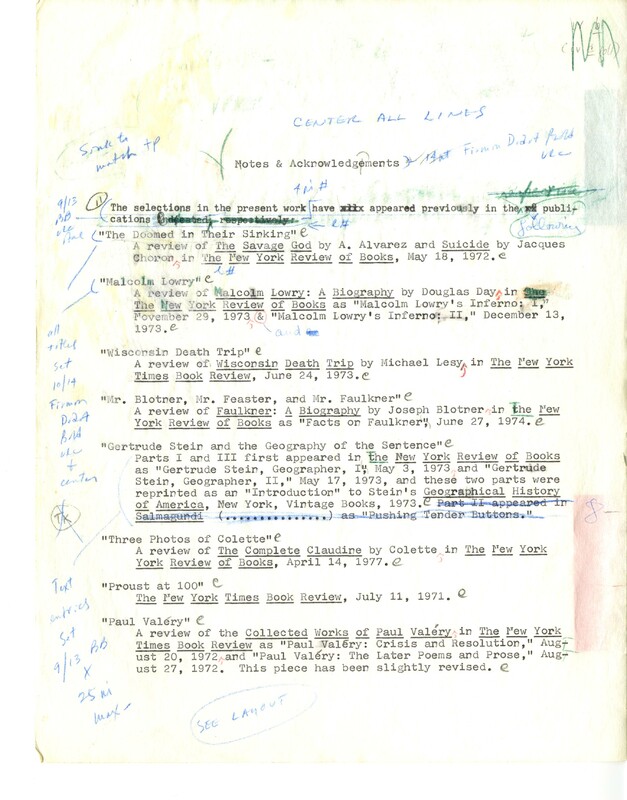 CENTER ALL LINES
Sink to
match tp
Notes & Acknowledgements
Firmin Didot Bold
ulc
9/13
BB
The selections in the present work have xxx appeared previously in the xx publi-
following
cations indicated, respectively.
"The Doomed in Their Sinking"
A review of The Savage God by A. Alvarez and Suicide by Jacques
Choron in The New York Review of Books, May 18, 1972.
"Malcolm Lowry"
A review of Malcolm Lowry: A Biography by Douglas Day in The
The New York Review of Books as "Malcolm Lowry's Inferno: I,"
November 29, 1973 & "Malcolm Lowry's Inferno: II," December 13,
and
1973.
"Wisconsin Death Trip"
A review of Wisconsin Death Trip by Michael Lesy in The New York
Times Book Review, June 24, 1973.
"Mr. Blotner, Mr. Feaster, and Mr. Faulkner"
A review of Faulkner: A Biography by Joseph Blotner in the New
York Review of Books as "Facts on Faulkner", June 27, 1974.
"Gertrude Stein and the Geography of the Sentence"
Parts I and III first appeared in the New York Review of Books
as "Gertrude Stein, Geographer, I", May 3, 1973 and "Gertrude
Stein, Geographer, II," May 17, 1973, and these two parts were
reprinted as an "Introduction" to Stein's Geographical History
of America, New York, Vintage Books, 1973. Part II appeared in
Salmagundi (..............) as "Pushing Tender Buttons."
"Three Photos of Colette"
A review of The Complete Claudine by Colette in The New York
York Review of Books, April 14, 1977.
"Proust at 100"
The New York Times Book Review, July 11, 1971.
"Paul Valéry"
A review of the Collected Works of Paul Valéry in The New York
Times Book Review as "Paul Valéry: Crisis and Resolution," Aug-
ust 20, 1972 and "Paul Valéry: The Later Poems and Prose," Aug-
ust 27, 1972. This piece has been slightly revised.
all
titles
set
10/14
Firmin
Didot
Bold
ulc
+
center
TK
Text
entries
set
9/13 BB
X
25
max
SEE LAYOUT